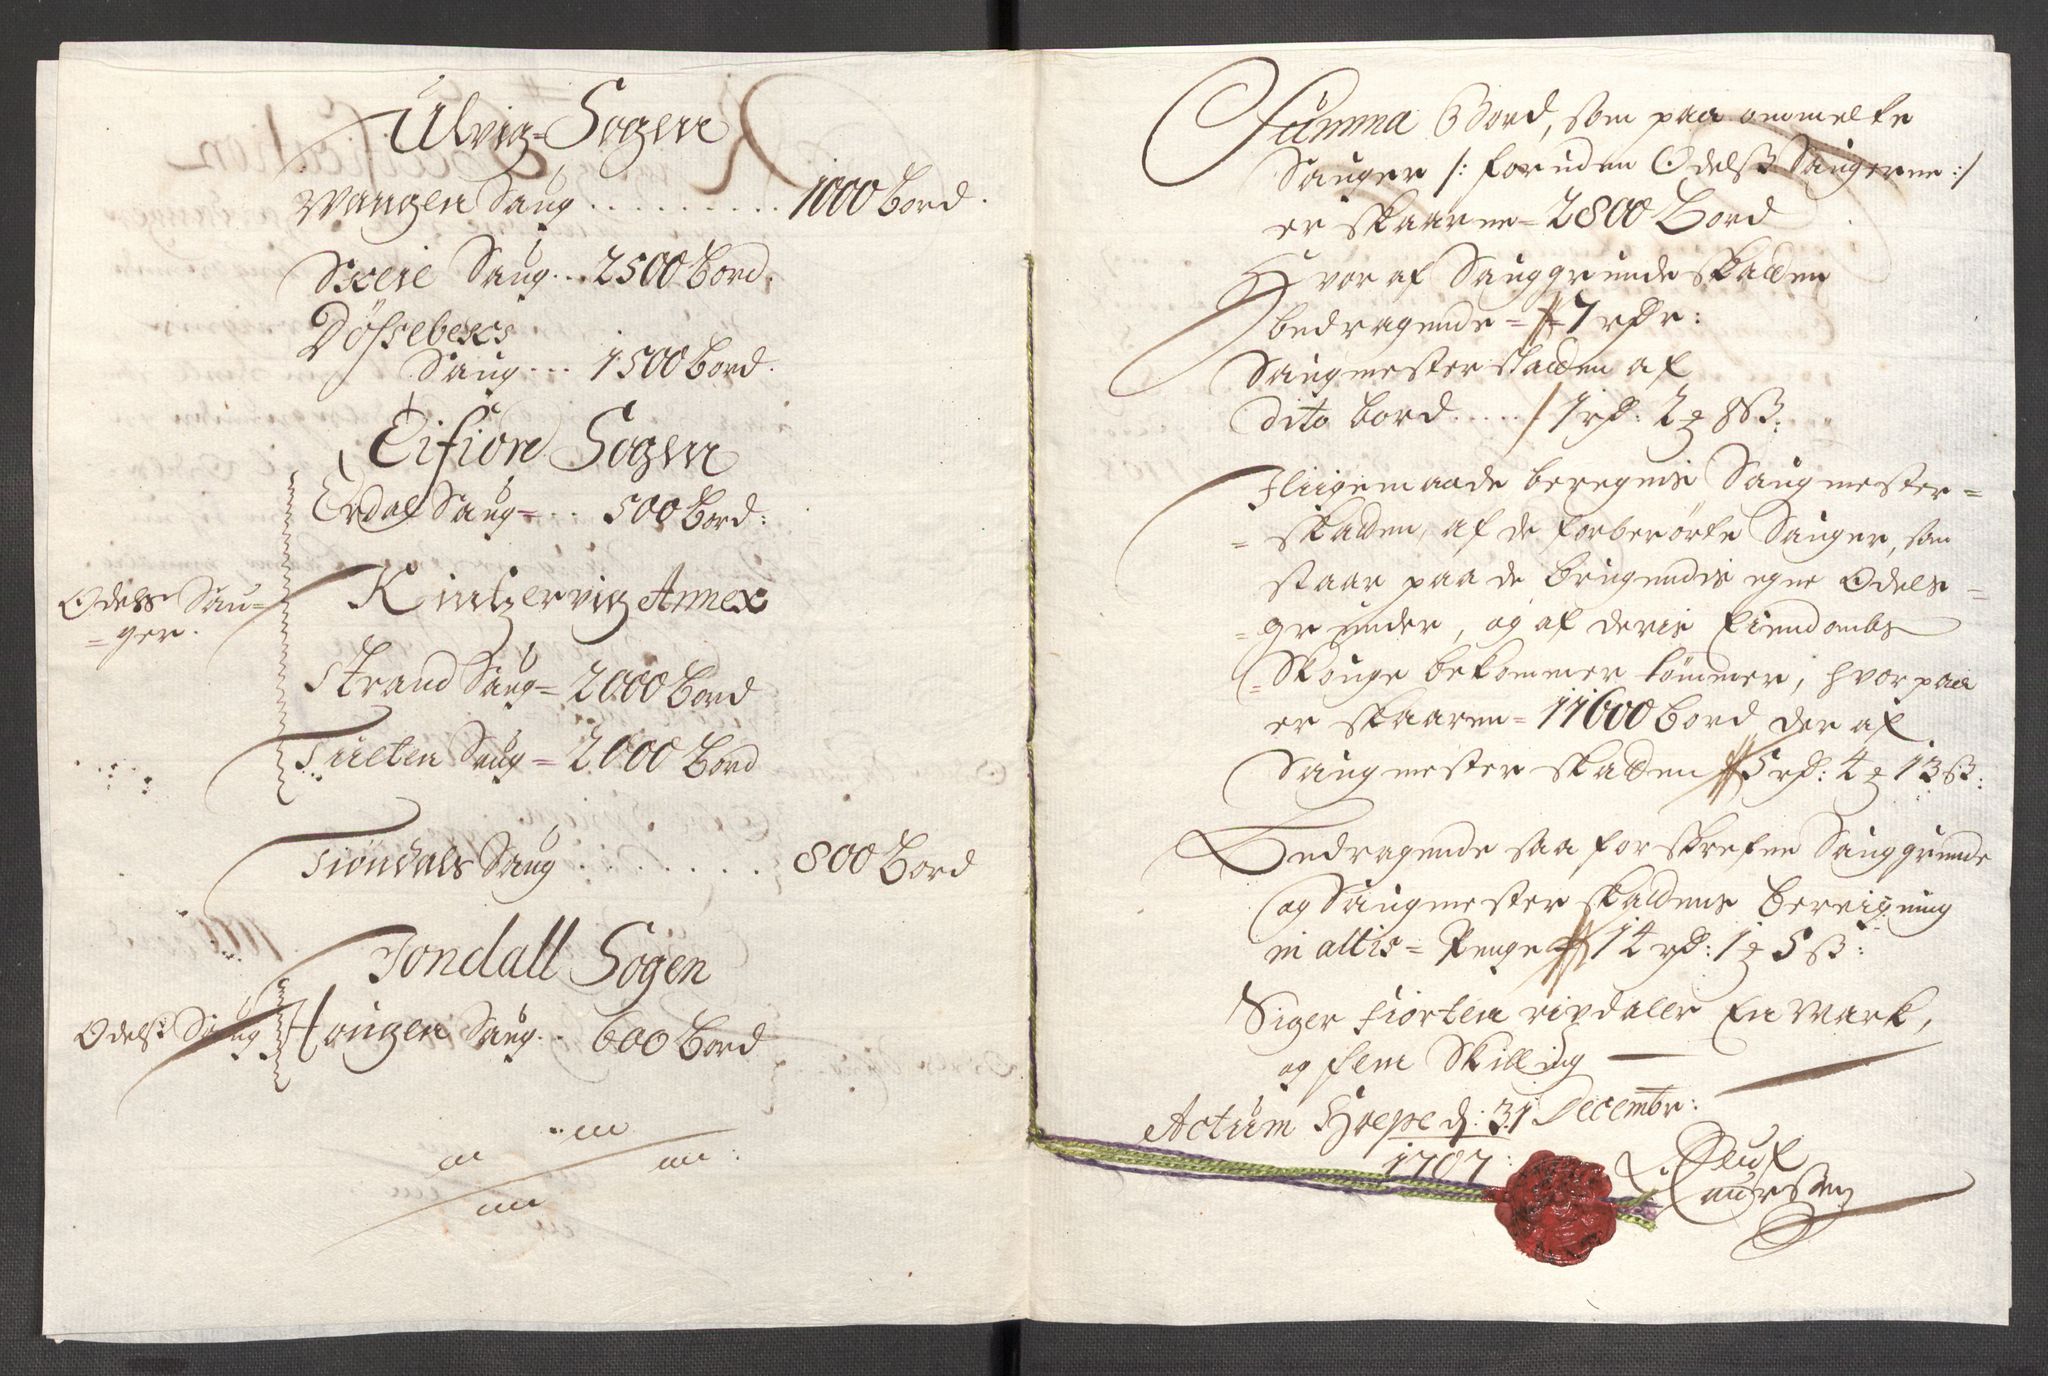 Ulvig-Sogen
Wangen Saug . . . . . . . . . 1000 Bord.
Saug ... 2500 Bord.
Döhsebeks
Saug ... 1500 Bord.
Eifiord Sogen
Erdal Saug = .. 500 Bord:
Odelss Sau=
=ger.
Kintzervig Annex
Strand Saug = 2000 Bord
Tueten Saug = 2000 Bord
Tiöndals Saug . . . . . . . 800 Bord
Jondall Sogen
Odelss Saug Hougen Saug .. 600 Bord
Summa Bord, som paa ommelte
Sauger /: foruden Odelss Saugerne :/
er skaarne = 2800 Bord
Hvor af Sauggrunde skatten
bedragende = 7 rdr:
Saugmester skatten af
dito bord ..... 1 rd: 2 8 ß:
Jliigemaade beregnis Saugmester=
=skatten, af de forberörte Sauger, som
staar paa de brugendis egne Odels=
=grunder, og af deris Eiendombs
=Skouge bekommer tömmer, hvorpaa
er skaaren = 11600 Bord der af
Saugmester skatten 5 rd: 4 13 ß:
Bedragende saa forskrefne Sauggrunde
og Saugmester skattens Bereigning
in altis = Penge 14 rd: 1 5 ß:
Siger Fiorten rixdaler En Mark,
og fem Skilling
Actum Hoepe d: 31 Decembr:
1707:
Laurssen